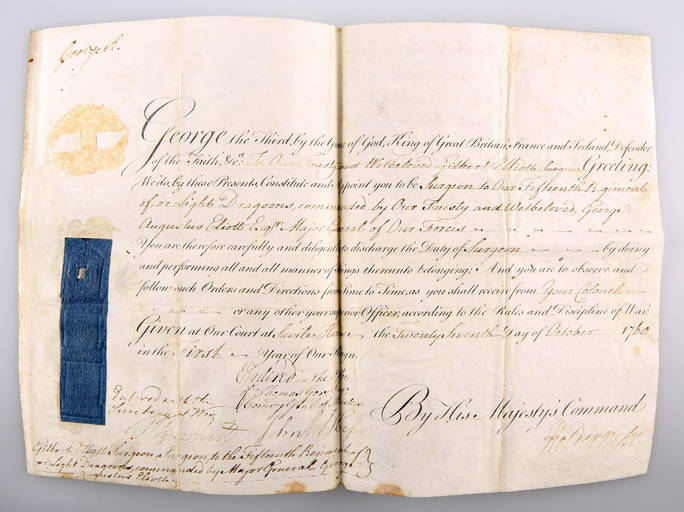 George R.
George the Third, by the Grace of God, King of Great Britain, France and Ireland, Defender
of the Faith, &c. To Our Trusty and Welbeloved Gilbert Elliott Surgeon Greeting:
We do, by these Presents, Constitute and Appoint you to be Surgeon to Our Fifteenth Regiment
of, or Light Dragoons, commanded by Our Trusty and Welbeloved, George
Augustus Eliott Esqr. Major General of Our Forces
You are therefore carefully and diligently to discharge the Duty of Surgeon by doing
and performing all and all manner of Things thereunto belonging: And you are to observe and
follow such Orders and Directions from time to Time, as you shall receive from Your Colonel
or any other your superior Officer, according to the Rules and Discipline of War.
Given at Our Court at Savile House the Twenty Seventh Day of October 1760
in the First Year of Our Reign.
By His Majesty's Command
Entered in the
Thomas Gore
Comry Genl of Musters
Entered with the
Secretary at War
Gilbert Elliott Surgeon, Surgeon to the Fifteenth Regiment of
or Light Dragoons, commanded by Major General George
Augustus Eliott